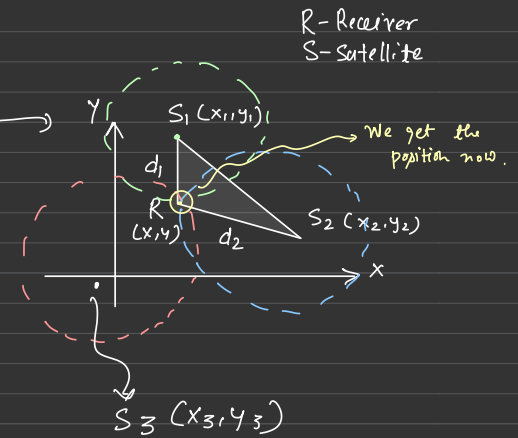 R - Receiver
S - Satellite
Y
S₁ (x₁, y₁)
We get the
position now.
d₁
R
(x,y)
d₂
S₂ (x₂, y₂)
X
S₃ (x₃, y₃)